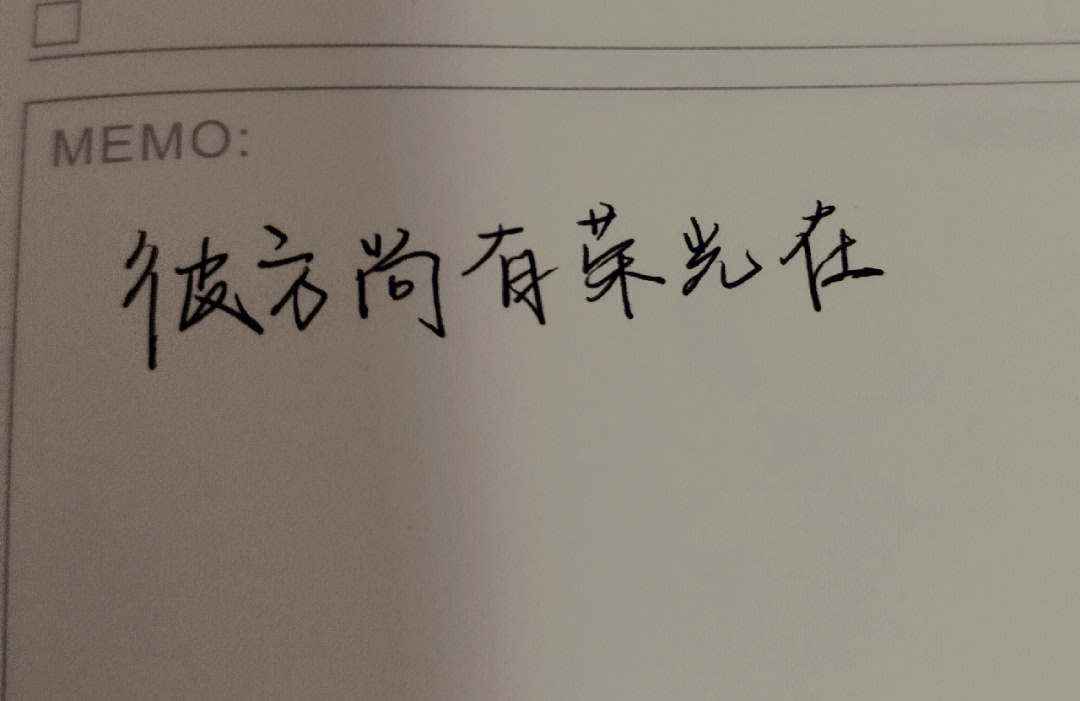 MEMO:
彼方尚有荣光在